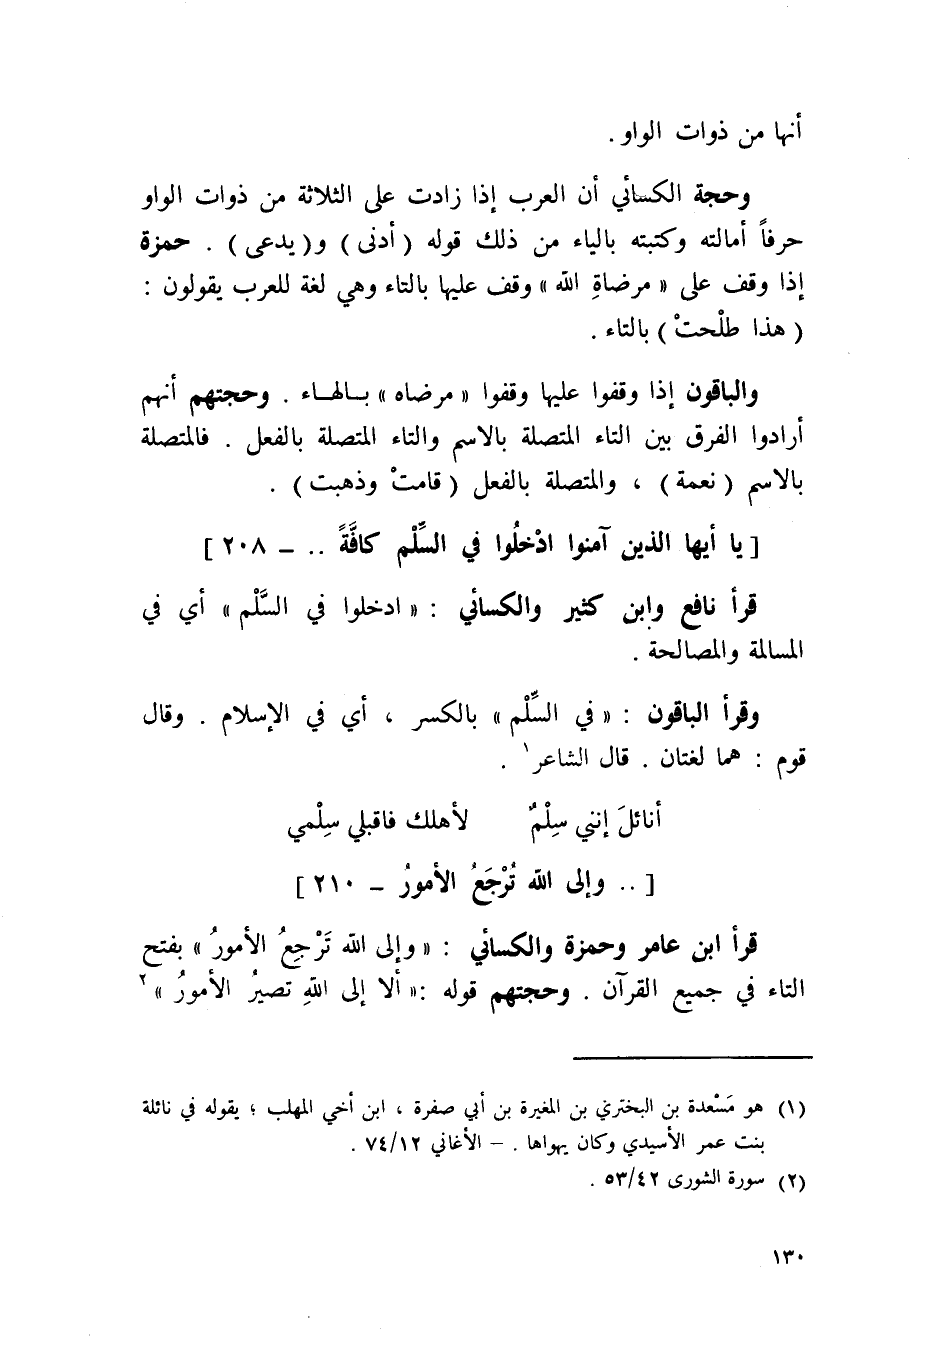 أنها من ذوات الواو .
وحجة الكسائي أن العرب إذا زادت على الثلاثة من ذوات الواو
حرفاً أمالته وكتبته بالياء من ذلك قوله ( أدنى ) و( يدعى ) . حمزة
إذا وقف على « مرضاةِ الله » وقف عليها بالتاء وهي لغة للعرب يقولون :
( هذا طلْحتْ ) بالتاء .
والباقون إذا وقفوا عليها وقفوا « مرضاه » بالهاء . وحجتهم أنهم
أرادوا الفرق بين التاء المتصلة بالاسم والتاء المتصلة بالفعل . فالمتصلة
بالاسم ( نعمة ) ، والمتصلة بالفعل ( قامتْ وذهبت ) .
[ يا أيها الذين آمنوا ادْخلُوا في السِّلْم كافَّةً .. – ٢٠٨ ]
قرأ نافع وابن كثير والكسائي : « ادخلوا في السَّلْم » أي في
المسالمة والمصالحة .
وقرأ الباقون : « في السِّلْم » بالكسر ، أي في الإسلام . وقال
قوم : هما لغتان . قال الشاعر١ .
أنائلَ إنني سِلْمٌ لأهلك فاقبلي سِلْمي
[ .. وإلى الله تُرْجَعُ الأمورُ – ٢١٠ ]
قرأ ابن عامر وحمزة والكسائي : « وإلى الله تَرْجِعُ الأمورُ » بفتح
التاء في جميع القرآن . وحجتهم قوله :« ألا إلى اللهِ تصيرُ الأمورُ »٢
(١) هو مَسْعدة بن البختري بن المغيرة بن أبي صفرة ، ابن أخي المهلب ؛ يقوله في نائلة
بنت عمر الأسيدي وكان يهواها . – الأغاني ٧٤/١٢ .
(٢) سورة الشورى ٥٣/٤٢ .
١٣٠